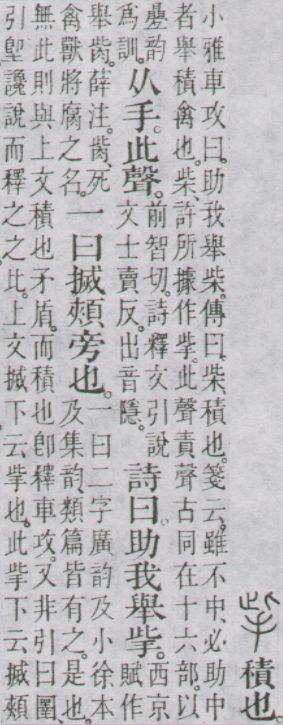 㧘積也。
小雅車攻曰。助我舉柴。傳曰。柴、積也。箋云。雖不中、必助中
者舉積禽也。柴、許所據作㧘。此聲責聲古同在十六部。以
疊韵
爲訓。
从手此聲。
前智切。詩釋文引說
文士賣反。出音隱。
詩曰。助我舉㧘。
西京
賦作
舉胔。薛注。胔、死
禽獸將腐之名。
一曰搣頰旁也。
一曰二字廣韵及小徐本
及集韵、類篇皆有之。是也。
無此則與上文積也矛盾。而積也卽釋車攻。又非引曰圛、
引堲讒說而釋之之比。上文搣下云、㧘也。此㧘下云搣頰